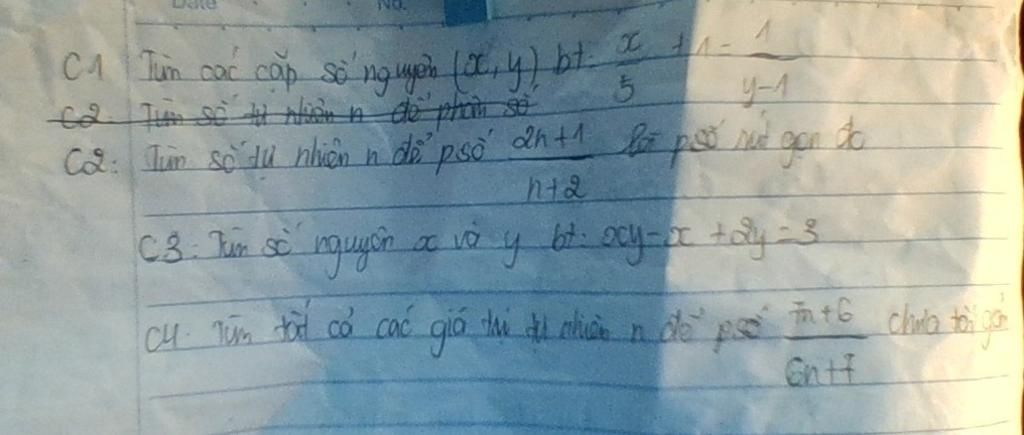 Date No.
C1 Tìm các cặp số nguyên (x, y) bt: x/5 + 1 = 1/y-1
C2: Tìm số tự nhiên n để phân số
C2: Tìm số tự nhiên n để psố 2n+1/n+2 là psố rút gọn đc
C3: Tìm số nguyên x và y bt: xy - x + 2y = 3
C4. Tìm tất cả các giá trị tự nhiên n để psố 7n+6/6n+7 chưa tối giản